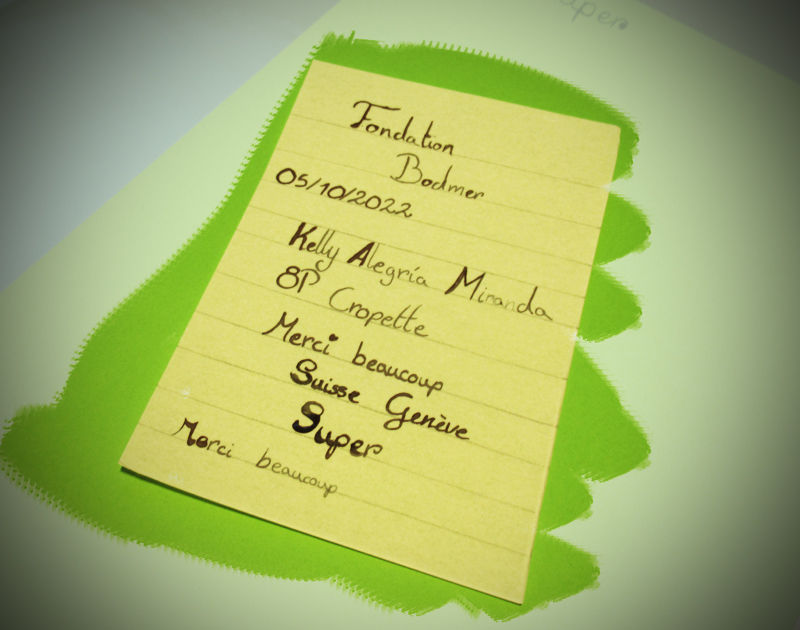 uper
Fondation
Bodmer
05/10/2022
Kelly Alegría Miranda
8P Cropette
Merci beaucoup
Suisse Genève
Super
Merci beaucoup